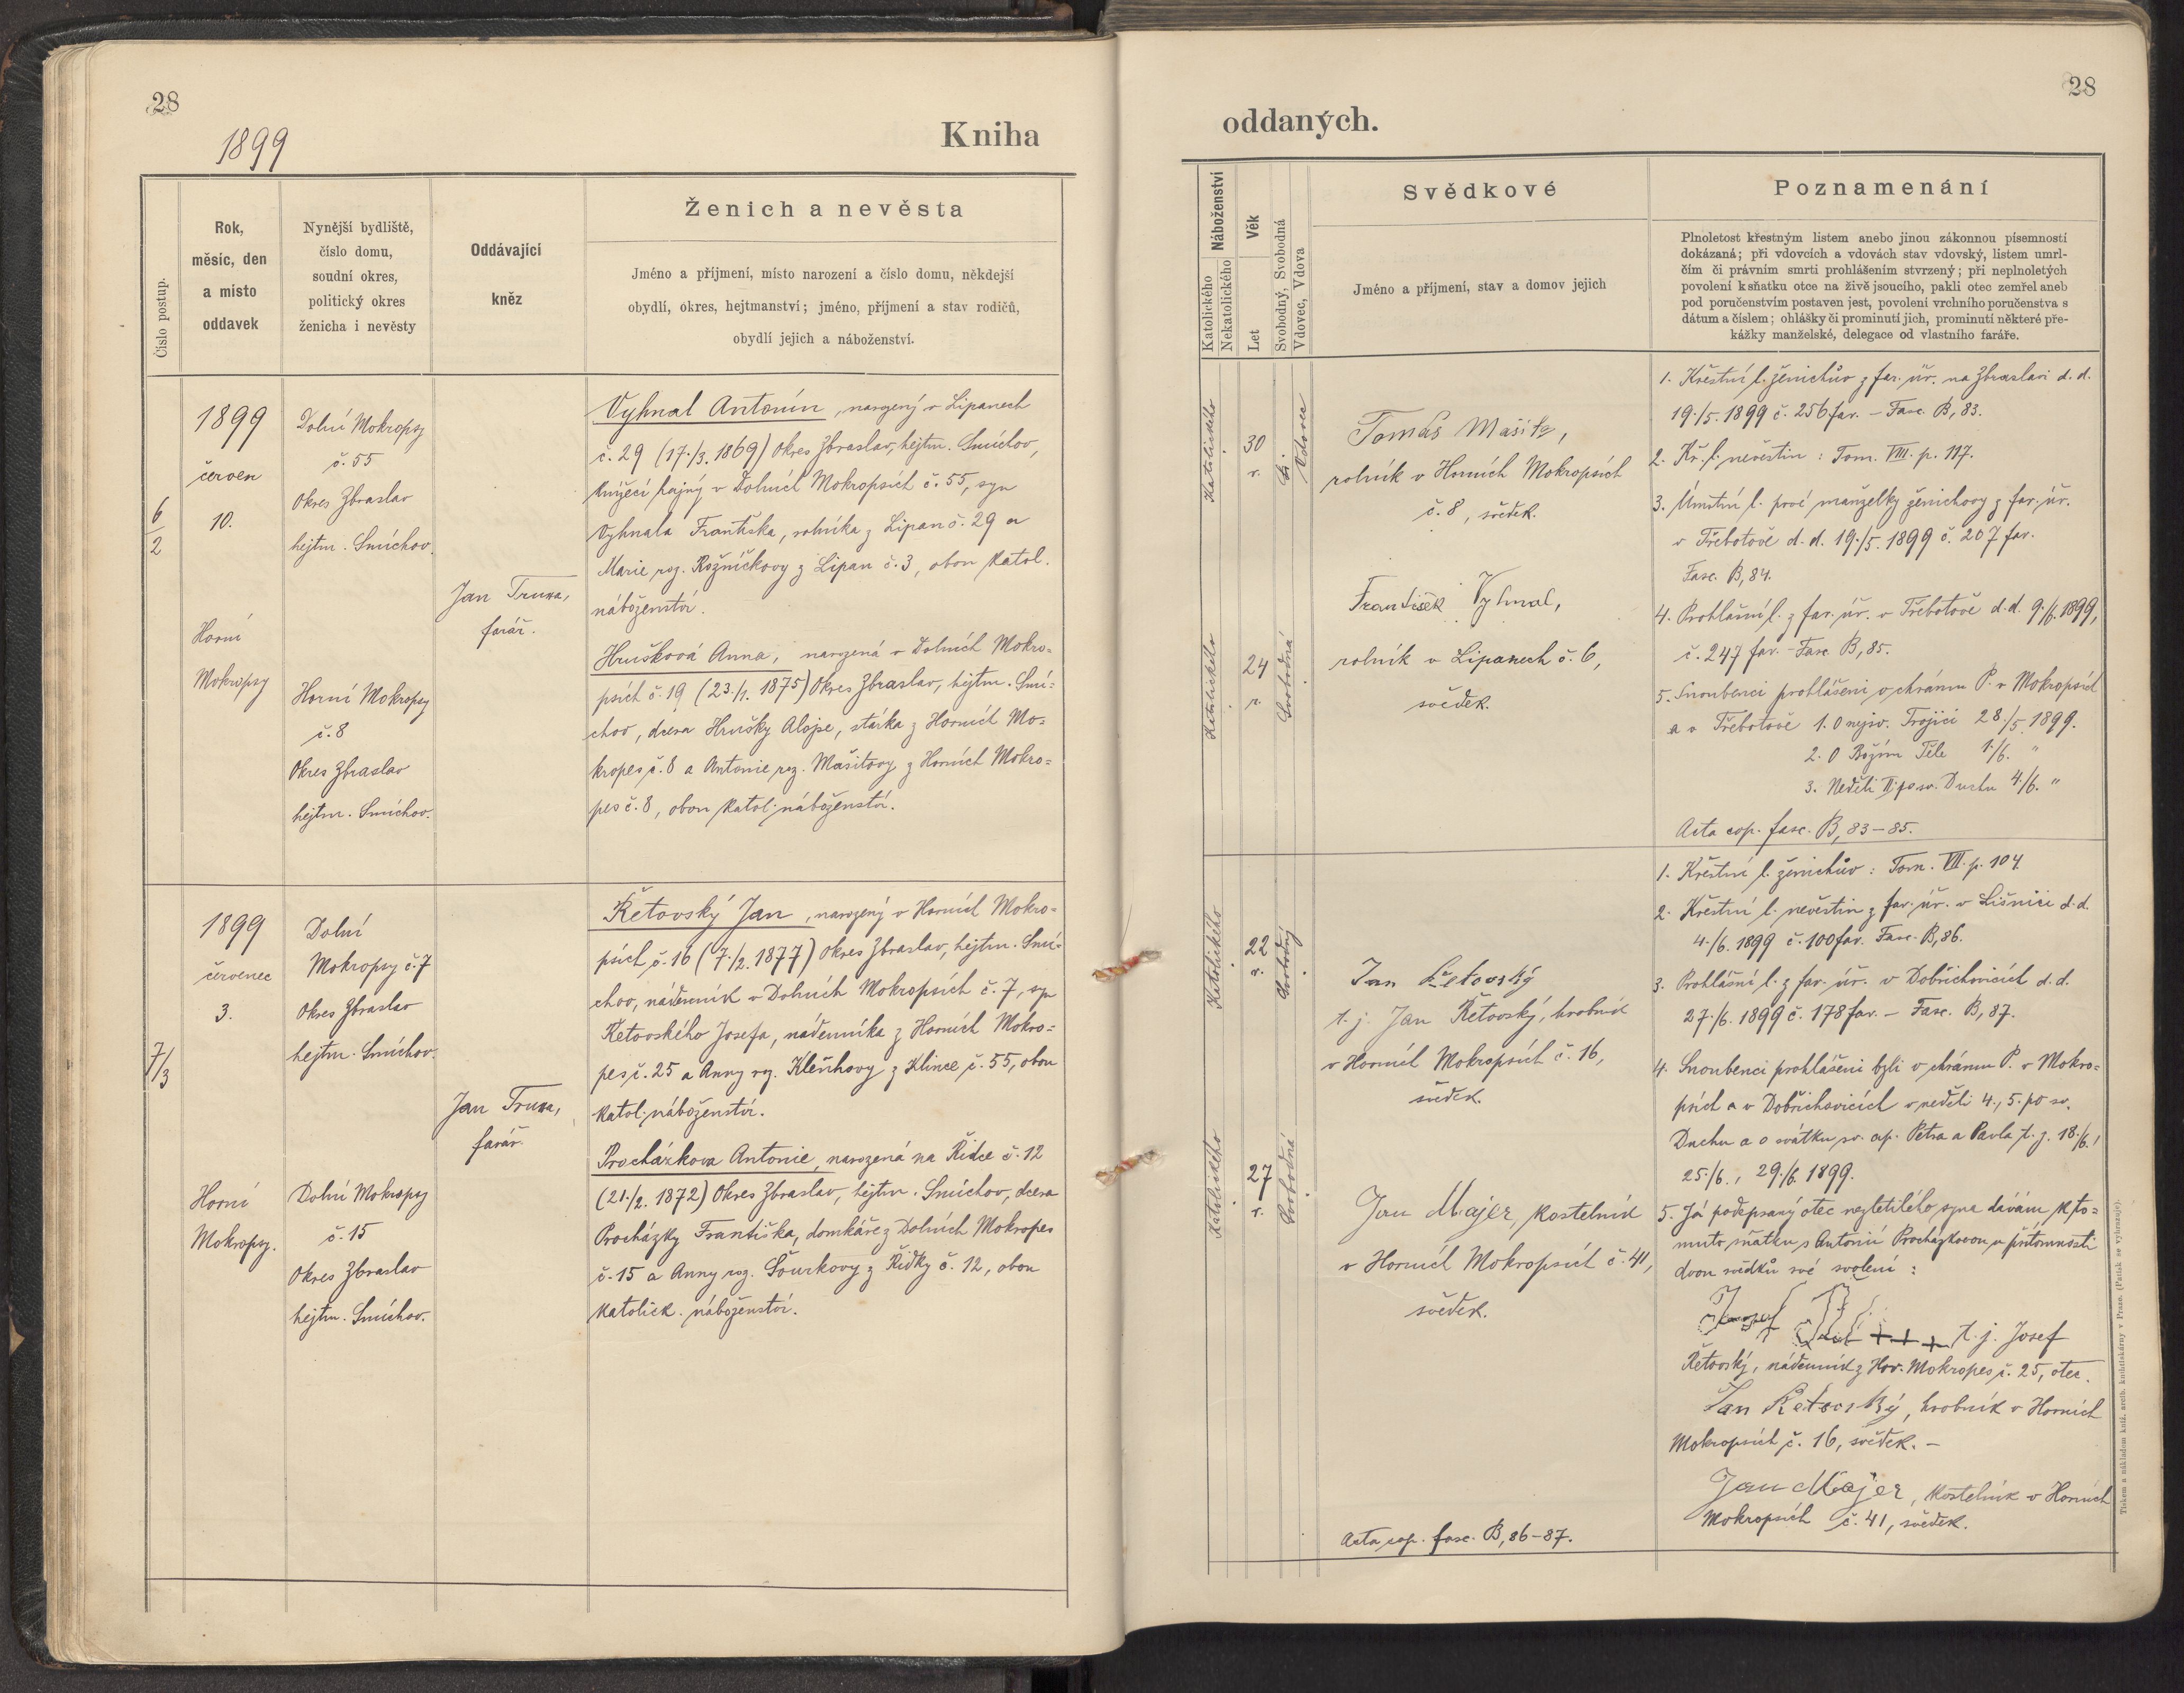 28
1899
Kniha
Číslo postup.
Rok,
měsíc, den
a místo
oddavek
Nynější bydliště,
číslo domu,
soudní okres,
politický okres
ženicha i nevěsty
Oddávající
kněz
Ženich a nevěsta
Jméno a příjmení, místo narození a číslo domu, někdejší
obydlí, okres, hejtmanství; jméno, příjmení a stav rodičů,
obydlí jejich a náboženství.
6
2
1899
červen
10.
Horní
Mokropsy
Dolní Mokropsy
č. 55
Okres Zbraslav
hejtm. Smíchov.
Horní Mokropsy
č. 8
Okres Zbraslav
hejtm. Smíchov.
Jan Truxa,
farář.
Vyhnal Antonín, narozený v Lipanech
č. 29 (17./3. 1869) Okres Zbraslav, hejtm. Smíchov,
knížecí hajný v Dolních Mokropsích č. 55, syn
Vyhnala Františka, rolníka z Lipan č. 29 a
Marie roz. Rožníčkovy z Lipan č. 3, obou katol.
náboženství.
Hrušková Anna, narozená v Dolních Mokro=
psích č. 19 (23./1. 1875) Okres Zbraslav, hejtm. Smí=
chov, dcera Hrušky Aloise, stárka z Horních Mo=
kropes č. 8 a Antonie roz. Mašitovy z Horních Mokro=
pes č. 8, obou katol. náboženství.
7/3
1899
červenec
3.
Horní
Mokropsy.
Dolní
Mokropsy č. 7
Okres Zbraslav
hejtm. Smíchov.
Dolní Mokropsy
č. 15
Okres Zbraslav
hejtm. Smíchov.
Jan Truxa,
farář.
Řetovský Jan, narozený v Horních Mokro=
psích č. 16 (7./2. 1877) Okres Zbraslav, hejtm. Smí=
chov, nádenník v Dolních Mokropsích č. 7, syn
Řetovského Josefa, nádenníka z Horních Mokro=
pes č. 25 a Anny roz. Kleňhovy z Klince č. 55, obou
katol. náboženství.
Procházkova Antonie, narozená na Řidce č. 12
(21./2. 1872) Okres Zbraslav, hejtm. Smíchov, dcera
Procházky Františka, domkáře z Dolních Mokropes
č. 15 a Anny roz. Šourkovy z Řidky č. 12, obou
katolick. náboženství.
28
oddaných.
Náboženství
Katolického
Nekatolického
Věk
Let
Svobodný, Svobodná
Vdovec, Vdova
Svědkové
Jméno a příjmení, stav a domov jejich
Poznamenání
Plnoletost křestným listem anebo jinou zákonnou písemností
dokázaná; při vdovcích a vdovách stav vdovský, listem umrl-
čím či právním smrti prohlášením stvrzený; při neplnoletých
povolení k sňatku otce na živě jsoucího, pakli otec zemřel aneb
pod poručenstvím postaven jest, povolení vrchního poručenstva s
dátum a číslem; ohlášky či prominutí jich, prominutí některé pře-
kážky manželské, delegace od vlastního faráře.
Katolického
30
r.
Vdovec
Katolického
24
r.
Svobodná
Tomáš Mašita,
rolník v Horních Mokropsích
č. 8, svědek.
František Vyhnal,
rolník v Lipanech č. 6,
svědek.
1. Křestní l. ženichův z far. úř. na Zbraslavi d. d.
19./5. 1899 č. 256 far. – Fasc. B, 83.
2. Kř. l. nevěstin: Tom. VIII. p. 117.
3. Úmrtní l. prvé manželky ženichovy z far. úř.
v Třebotově d. d. 19./5. 1899 č. 207 far.
Fasc. B, 84.
4. Prohlášní l. z far. úř. v Třebotově d. d. 9./6. 1899,
č. 247 far. – Fasc. B, 85.
5. Snoubenci prohlášeni v chrámu P. v Mokropsích
a v Třebotově 1. O nejsv. Trojici 28./5. 1899.
2. O Božím Těle 1./6. "
3. Neděli II. po sv. Duchu 4./6. "
Acta cop. fasc. B, 83–85.
Katolického
22
r.
Svobodný
Katolického
27
r.
Svobodná
Jan Řetovský
t. j. Jan Řetovský, hrobník
v Horních Mokropsích č. 16,
svědek.
Jan Majer, kostelník
v Horních Mokropsích č. 41,
svědek.
Acta cop. fasc. B, 86–87.
1. Křestní l. ženichův: Tom. VII. p. 104
2. Křestní l. nevěstin z far. úř. v Líšnici d. d.
4./6. 1899 č. 100 far. Fasc. B, 86.
3. Prohlášní l. z far. úř. v Dobřichovicích d. d.
27./6. 1899 č. 178 far. – Fasc. B, 87.
4. Snoubenci prohlášeni byli v chrámu P. v Mokro=
psích a v Dobřichovicích v neděli 4., 5. po sv.
Duchu a o svátku sv. ap. Petra a Pavla t. j. 18./6.,
25./6., 29./6. 1899.
5. Já podepsaný otec nezletilého syna dávám k to=
muto sňatku s Antonií Procházkovou u přítomnosti
dvou svědků své svolení:
Josef +++ t. j. Josef
Řetovský, nádenník z Hor. Mokropes č. 25, otec.
Jan Řetovský, hrobník v Horních
Mokropsích č. 16, svědek. –
Jan Majer, kostelník v Horních
Mokropsích č. 41, svědek.
Tiskem a nákladem kníž. arcib. knihtiskárny v Praze. (Patisk se vyhrazuje).